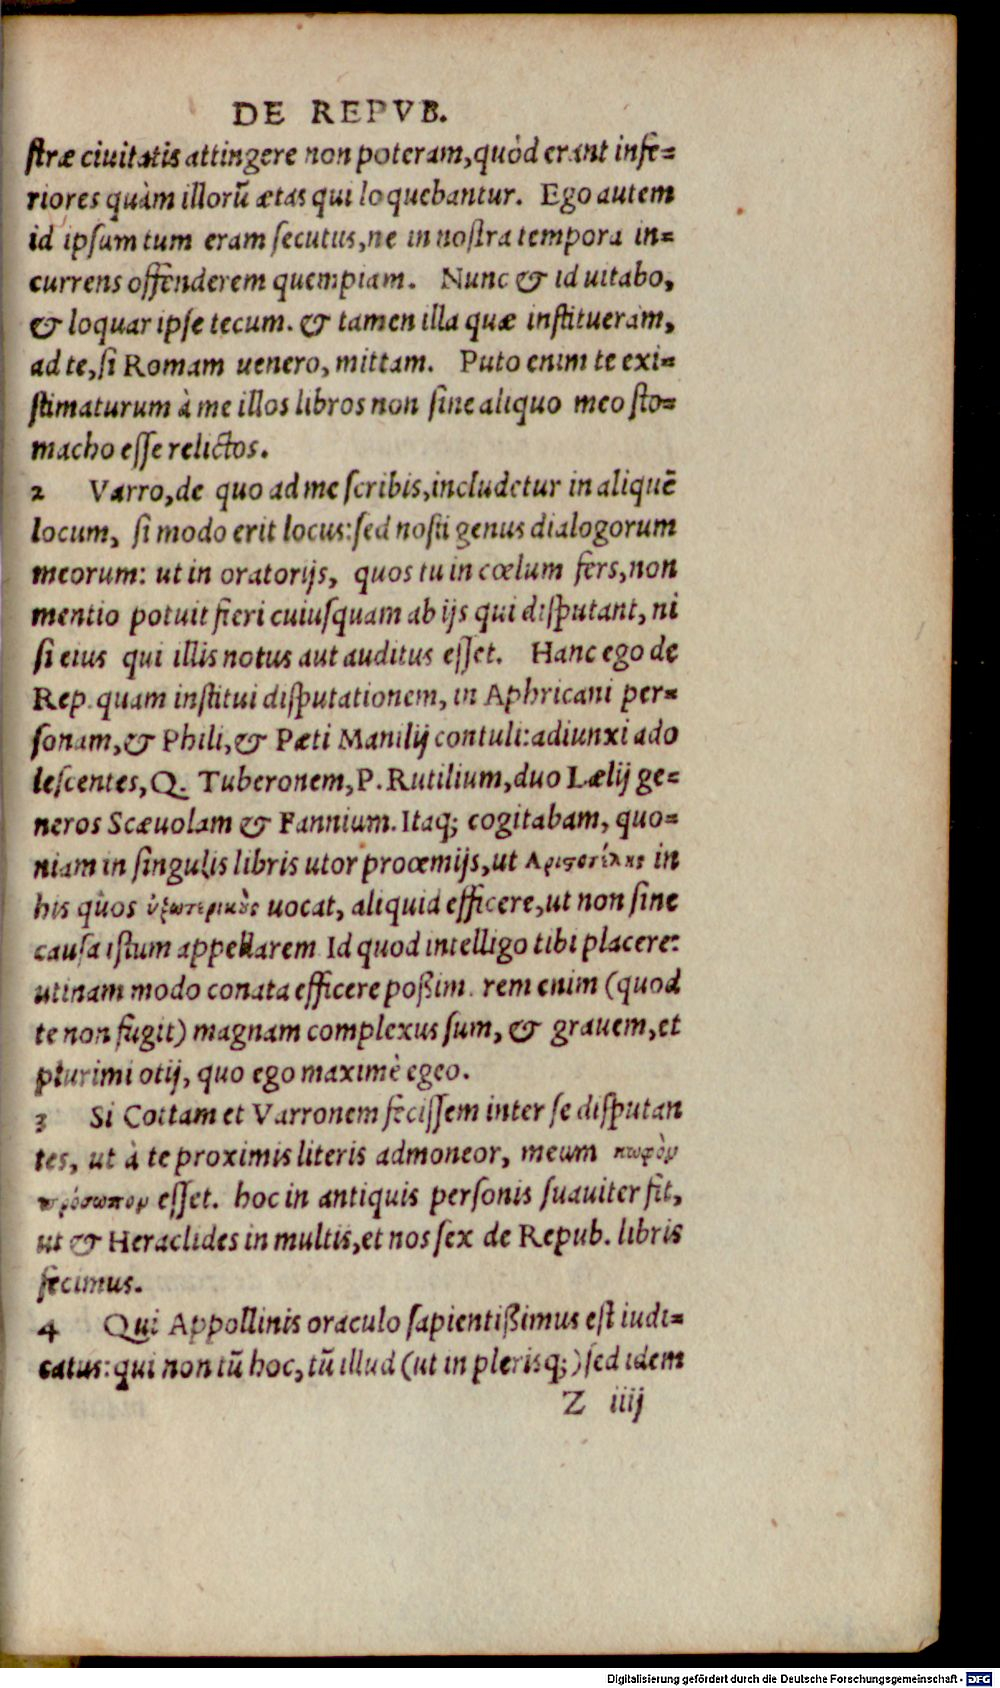 DE REPVB.
stræ ciuitatis attingere non poteram, quòd erant infe=
riores quàm illorũ ætas qui loquebantur. Ego autem
id ipsum tum eram secutus, ne in nostra tempora in=
currens offenderem quempiam. Nunc & id uitabo,
& loquar ipse tecum. & tamen illa quæ institueram,
ad te, si Romam uenero, mittam. Puto enim te exi=
stimaturum à me illos libros non sine aliquo meo sto=
macho esse relictos.
2 Varro, de quo ad me scribis, includetur in aliquẽ
locum, si modo erit locus: sed nosti genus dialogorum
meorum: ut in oratorijs, quos tu in cœlum fers, non
mentio potuit fieri cuiusquam ab ijs qui disputant, ni
si eius qui illis notus aut auditus esset. Hanc ego de
Rep. quam institui disputationem, in Aphricani per=
sonam, & Phili, & Pæti Manilij contuli: adiunxi ado
lescentes, Q. Tuberonem, P. Rutilium, duo Lælij ge=
neros Scæuolam & Fannium. Itaq; cogitabam, quo=
niam in singulis libris utor proœmijs, ut Αριστοτέλης in
his quos ὑξωτερικὸς uocat, aliquid efficere, ut non sine
causa istum appellarem. Id quod intelligo tibi placere:
utinam modo conata efficere poßim. rem enim (quod
te non fugit) magnam complexus sum, & grauem, et
plurimi otij, quo ego maximè egeo.
3 Si Cottam et Varronem fecissem inter se disputan
tes, ut à te proximis literis admoneor, meum κωφὸν
πρόσωπον esset. hoc in antiquis personis suauiter fit,
ut & Heraclides in multis, et nos sex de Repub. libris
fecimus.
4 Qui Appollinis oraculo sapientißimus est iudi=
catus: qui non tũ hoc, tũ illud (ut in plerisq;) sed idem
Z iiij
Digitalisierung gefördert durch die Deutsche Forschungsgemeinschaft - DFG